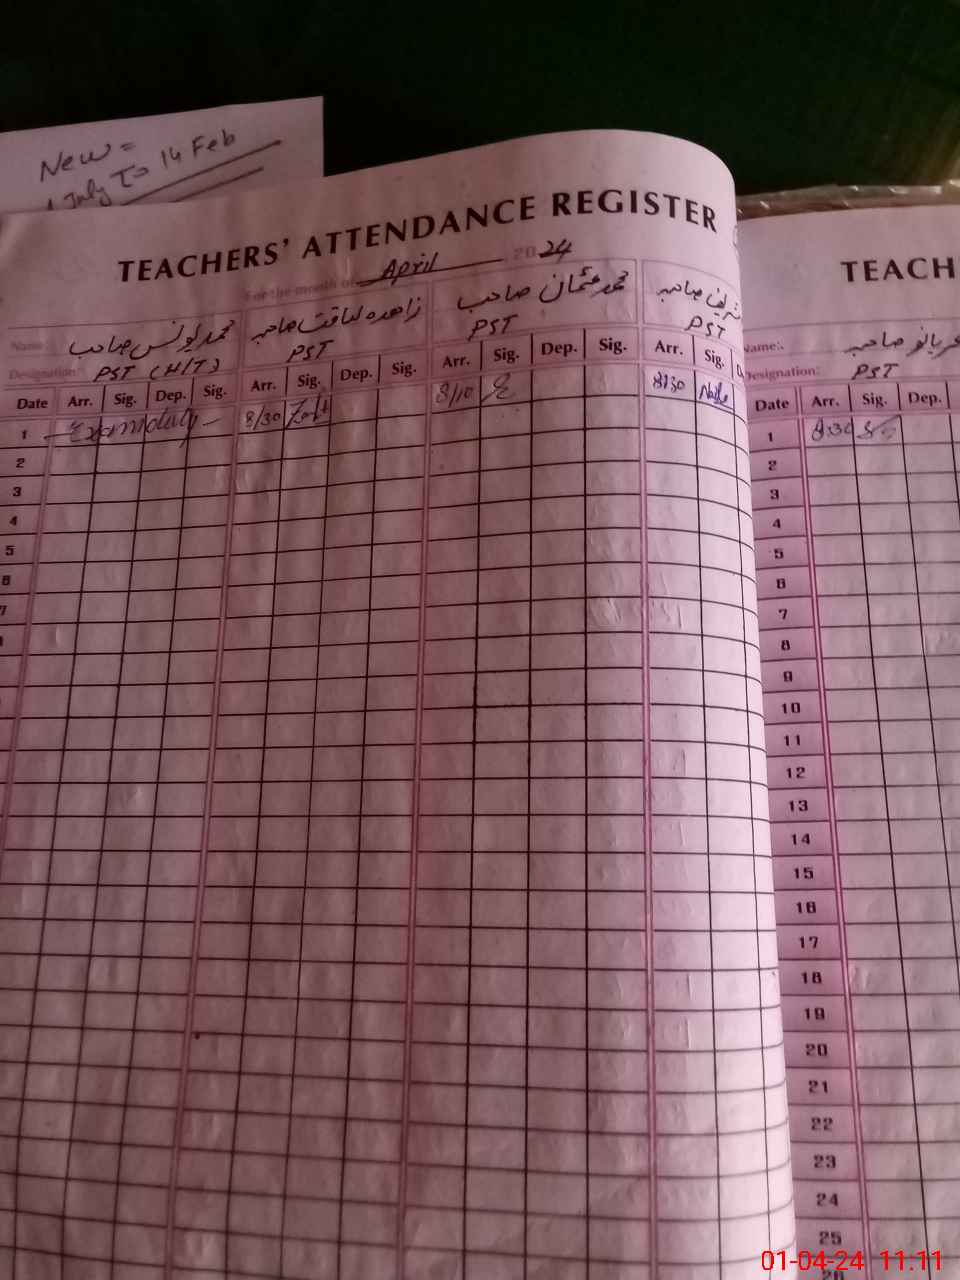 New =
July To 14 Feb
TEACHERS' ATTENDANCE REGISTER
For the month of April 2024
Name: محمد یونس صاحب
زاھدہ لیاقت صاحبہ
محمد عثمان صاحب
شریف صاحبہ
Designation: PST (H/T)
PST
PST
PST
Date Arr. Sig. Dep. Sig. Arr. Sig. Dep. Sig. Arr. Sig. Dep. Sig. Arr. Sig.
1 Exam duty 8/30 8/10 8:30
2
3
4
5
6
7
TEACH
Name: صاحبہ
Designation: PST
Date Arr. Sig. Dep.
1 8:30
2
3
4
5
6
7
8
9
10
11
12
13
14
15
16
17
18
19
20
21
22
23
24
25
26
01-04-24 11.11